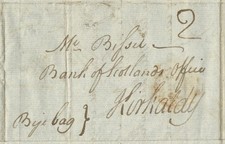 2
Mr. Bissit
Bank of Scotlands Office
Kirkaldy
Bye bag }